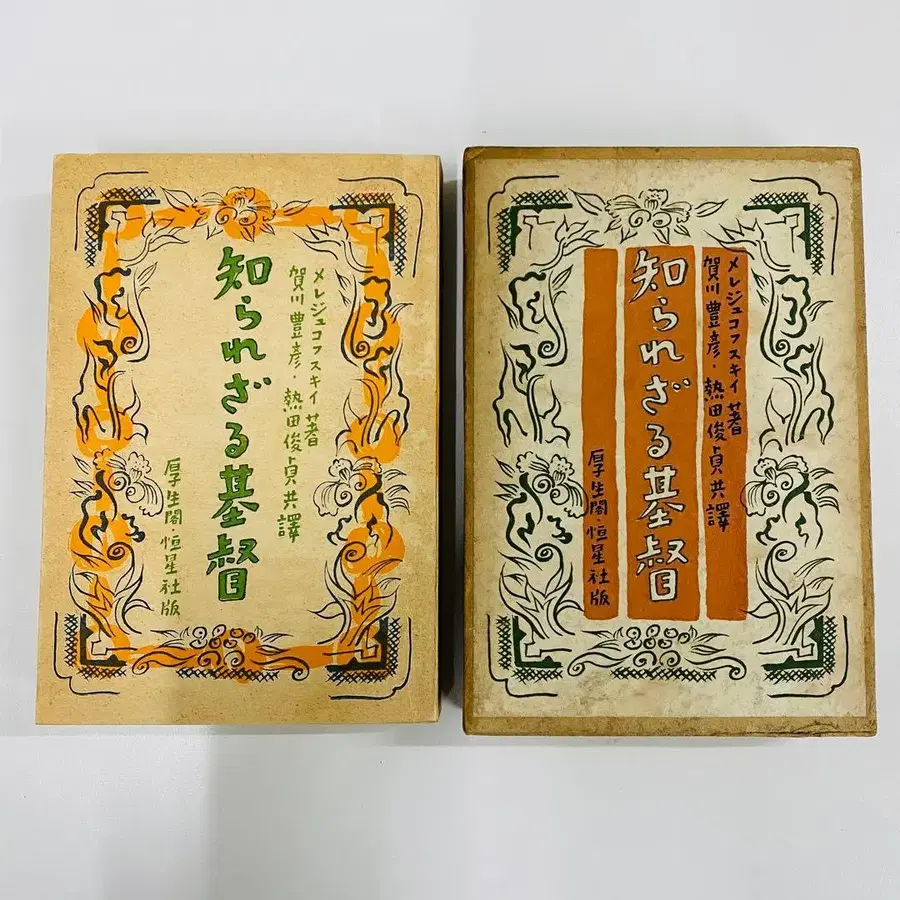 メレジュコフスキイ 著
賀川豊彦・熱田俊貞共譯
知られざる基督
厚生閣・恒星社版
メレジュコフスキイ 著
賀川豊彦・熱田俊貞共譯
知られざる基督
厚生閣・恒星社版